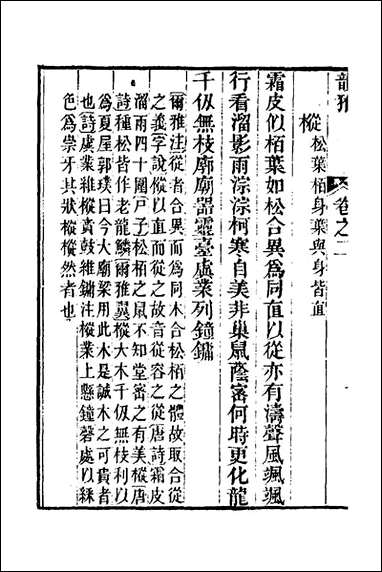 韻雅 卷之二
樅 松葉栢身葉與身皆直
霜皮似栢葉如松合異爲同直以從亦有濤聲風颯颯
行看溜影雨淙淙柯寒自美非巢鼠蔭密何時更化龍
千仭無枝廓廟器靈臺虡業列鐘鏞
爾雅注從者合異而爲同木合松栢之體故取合從
之義字說樅以直而從之故音從容之從唐詩霜皮
溜雨四十圍尸子松栢之鼠不知堂密之有美樅唐
詩種松皆作老龍鱗爾雅翼樅大木千仭無枝利以
爲夏屋郭璞曰今大廟梁用此木是誠木之可貴者
也詩虡業維樅賁鼓維鏞注樅業上懸鐘磬處以綵
色爲崇牙其狀樅樅然者也